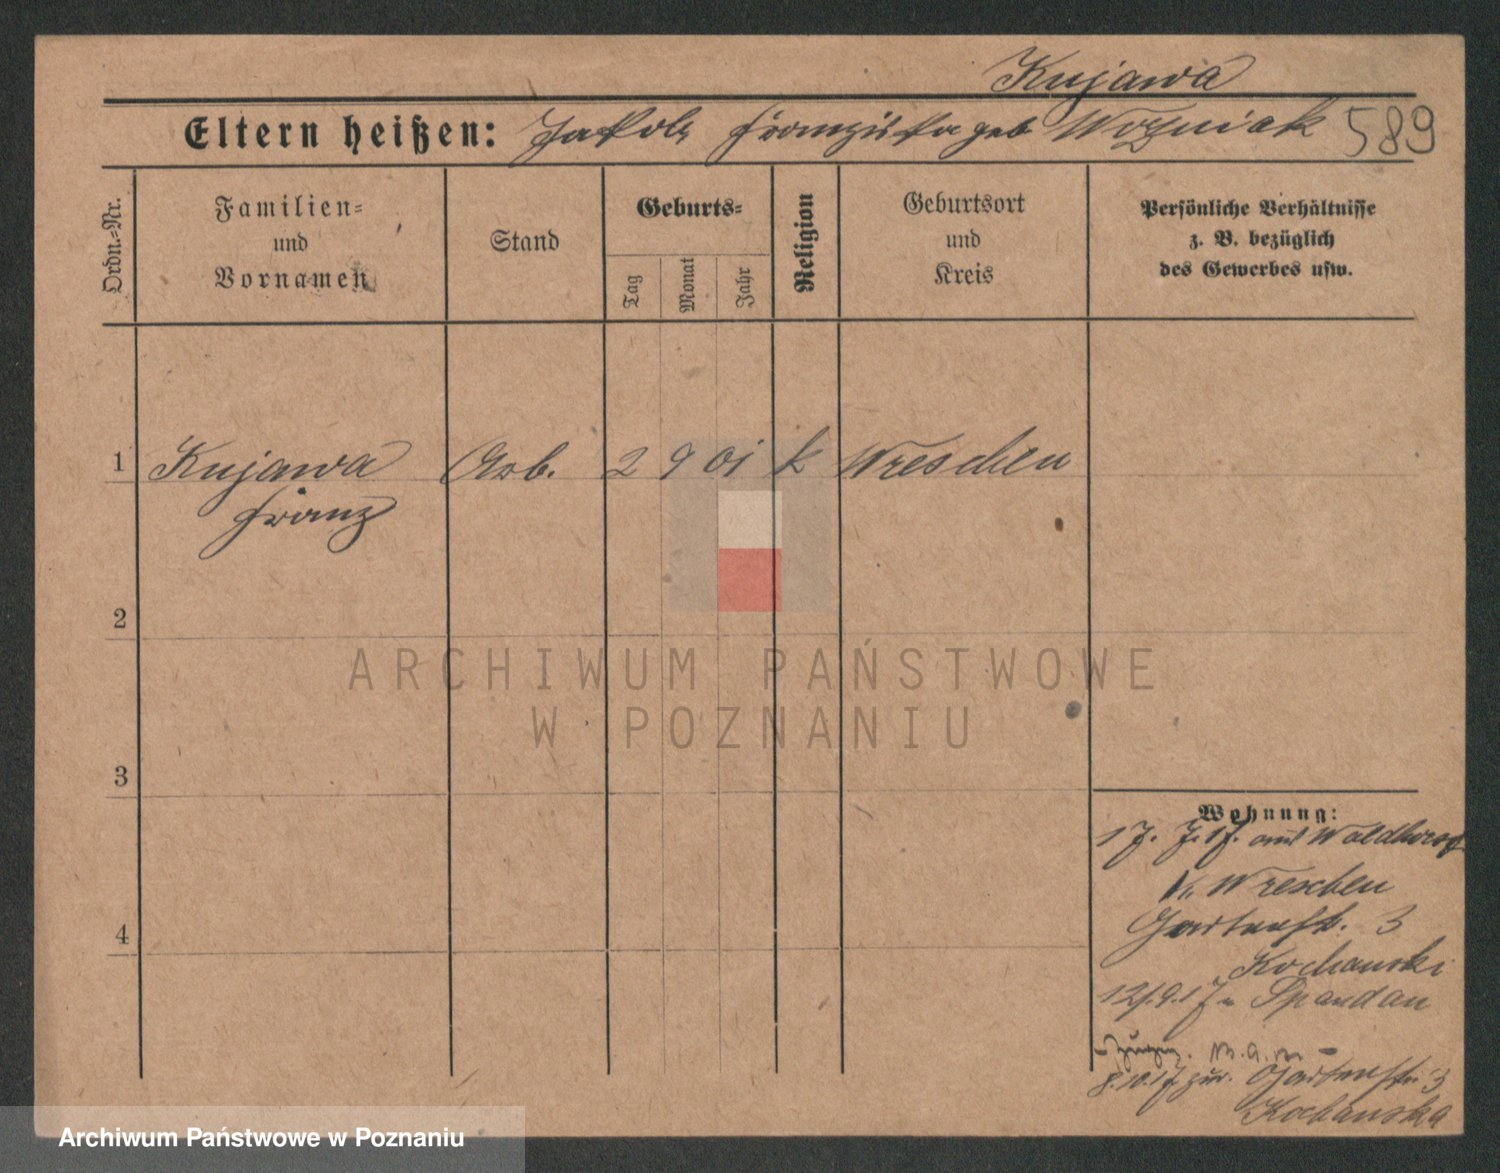 Kujawa
Eltern heißen: Jakob Franziska geb Wozniak 589
Ordn.=Nr.
Familien=
und
Vornamen
Stand
Geburts=
Tag
Monat
Jahr
Religion
Geburtsort
und
Kreis
Persönliche Verhältnisse
z. B. bezüglich
des Gewerbes usw.
1 Kujawa Arb. 2 9 01 k Wreschen
Franz
2
ARCHIWUM PAŃSTWOWE
W POZNANIU
3
Wohnung:
17. 7. 17. aus
Wreschen
Gartenstr. 3
Kochanski
12/9.17 n Spandau
8.10.17 zur. Gartenstr 3
Kochanska
4
Archiwum Państwowe w Poznaniu